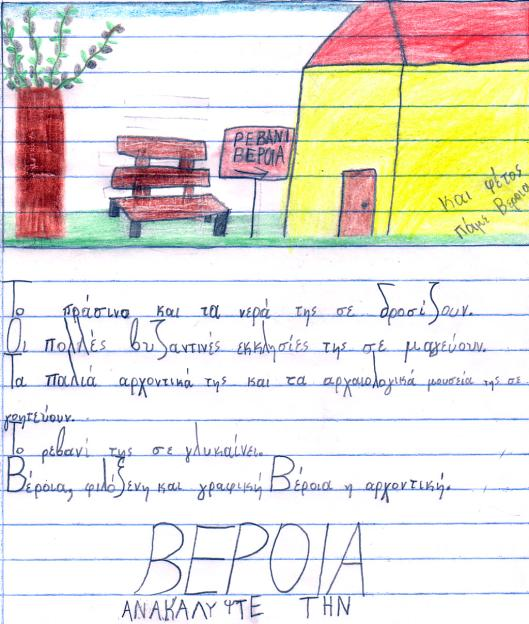 ΡΕΒΑΝΙ
ΒΕΡΟΙΑ
Και φέτος
πάμε Βέροια
Το πράσινο και τα νερά της σε δροσίζουν.
Οι πολλές βυζαντινές εκκλησίες της σε μαγεύουν.
Τα παλιά αρχοντικά της και τα αρχαιολογικά μουσεία της σε
γοητεύουν.
Το ρεβανί της σε γλυκαίνει.
Βέροια, φιλόξενη και γραφική Βέροια η αρχοντική.
ΒΕΡΟΙΑ
ΑΝΑΚΑΛΥΨΤΕ ΤΗΝ